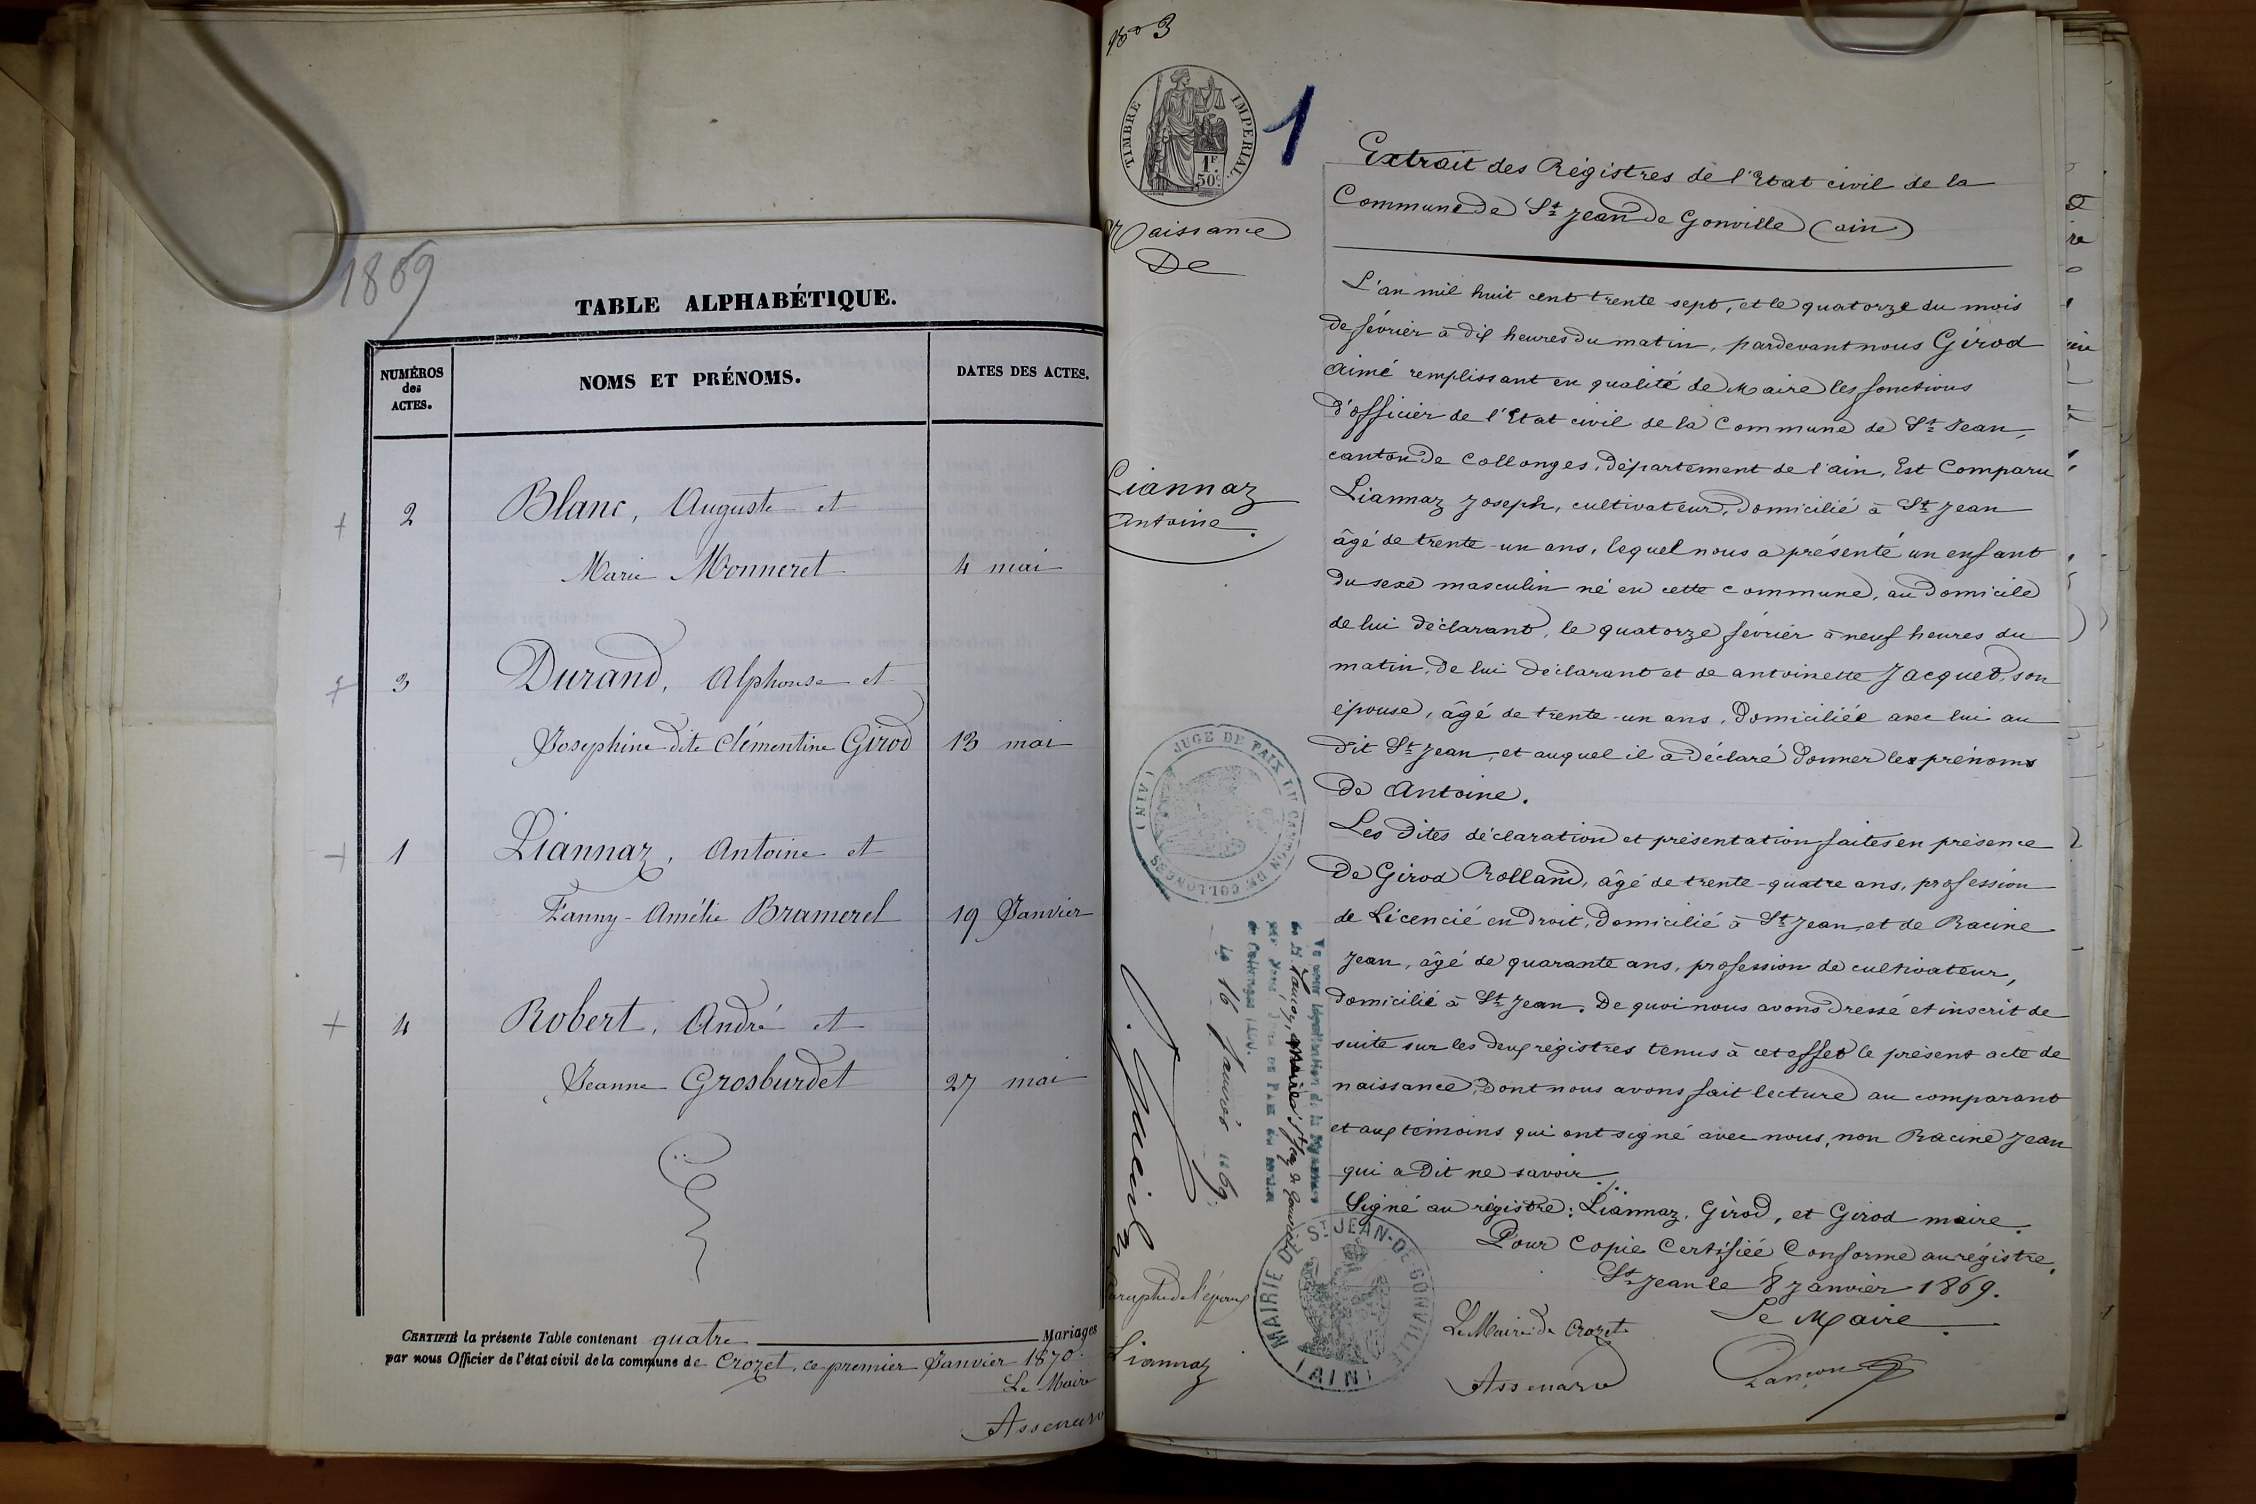 1869
TABLE ALPHABÉTIQUE.
NUMÉROS des ACTES.
NOMS ET PRÉNOMS.
DATES DES ACTES.
2 Blanc, Auguste et
Marie Monneret 4 mai
3 Durand, Alphonse et
Josephine dite Clémentine Girod 13 mai
1 Liannaz, Antoine et
Fanny-Amélie Bramerel 19 Janvier
4 Robert, André et
Jeanne Grosburdet 27 mai
CERTIFIÉ la présente Table contenant quatre Mariages
par nous Officier de l'état civil de la commune de Crozet, ce premier Janvier 1870.
Le Maire
No 3
TIMBRE IMPERIAL
1F. 50c.
1
Naissance
De
Liannaz
Antoine.
JUGE DE PAIX DU CANTON DE COLLONGES (AIN)
Vu pour légalisation de la signature
de M. Lançon, maire de St Jean de Gonville
par nous, Juge de Paix du canton
de Collonges (Ain).
Le 16 Janvier 1869.
paraphe de l'époux
Liannaz
Extrait des Régistres de l'Etat civil de la
Commune de St Jean de Gonville (ain)
L'an mil huit cent trente sept, et le quatorze du mois
de février à dix heures du matin, pardevant nous Girod
Aimé remplissant en qualité de Maire les fonctions
d'officier de l'Etat civil de la Commune de St Jean,
canton de Collonges, département de l'ain, Est Comparu
Liannaz Joseph, cultivateur, domicilié à St Jean
âgé de trente-un ans, lequel nous a présenté un enfant
du sexe masculin né en cette commune, au domicile
de lui déclarant, le quatorze février à neuf heures du
matin, de lui déclarant et de antoinette Jacquet, son
épouse, âgé de trente-un ans, domiciliée avec lui au
dit St Jean, et auquel il a déclaré donner les prénoms
de Antoine.
Les dites déclaration et présentation faites en présence
de Girod Rolland, âgé de trente-quatre ans, profession
de Licencié en droit, domicilié à St Jean, et de Racine
Jean, âgé de quarante ans, profession de cultivateur,
domicilié à St Jean. De quoi nous avons dressé et inscrit de
suite sur les deux régistres tenus à cet effet le présent acte de
naissance, dont nous avons fait lecture au comparant
et aux témoins qui ont signé avec nous, non Racine Jean
qui a dit ne savoir.
Signé au régistre: Liannaz, Girod, et Girod maire.
Pour Copie Certifiée Conforme au régistre.
St Jean le 8 janvier 1869.
Le Maire
Lançon
MAIRIE DE ST JEAN-DE-GONVILLE (AIN)
Le Maire de Crozet